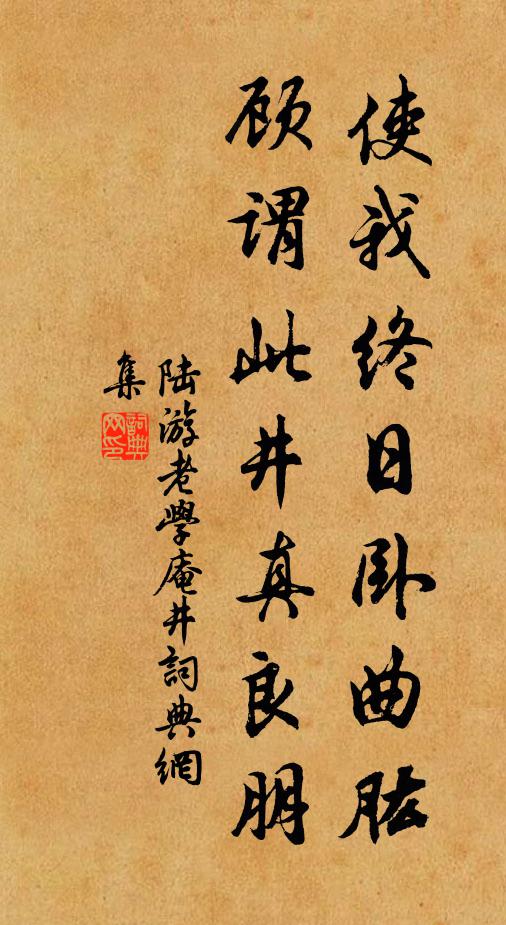 使我终日卧曲肱
顾谓此井真良朋
陆游老學庵井詞典網
集
詞典
网印